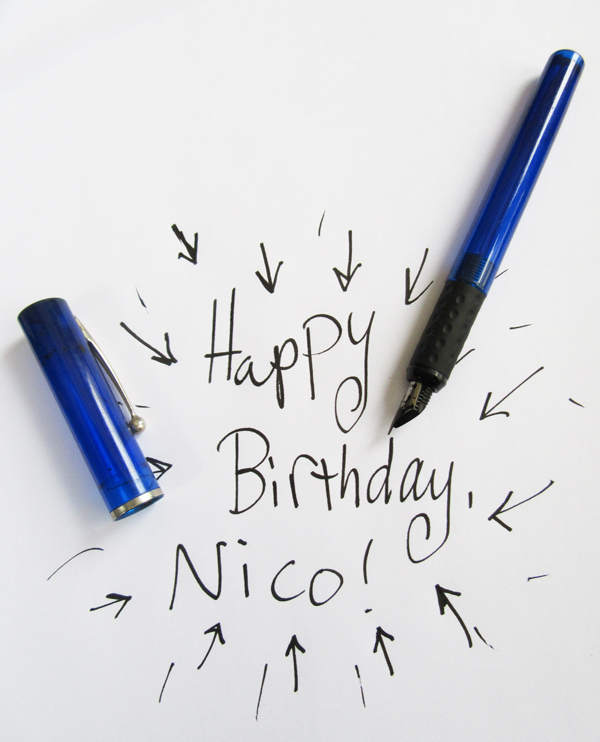 Happy
Birthday,
Nico!